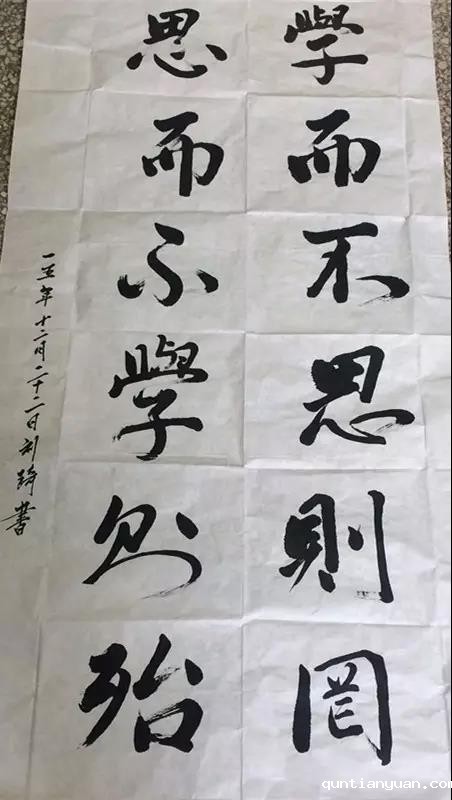 學而不思則罔
思而不學则殆
一五年十二月二十二日刘踦書
quntianyuan.com